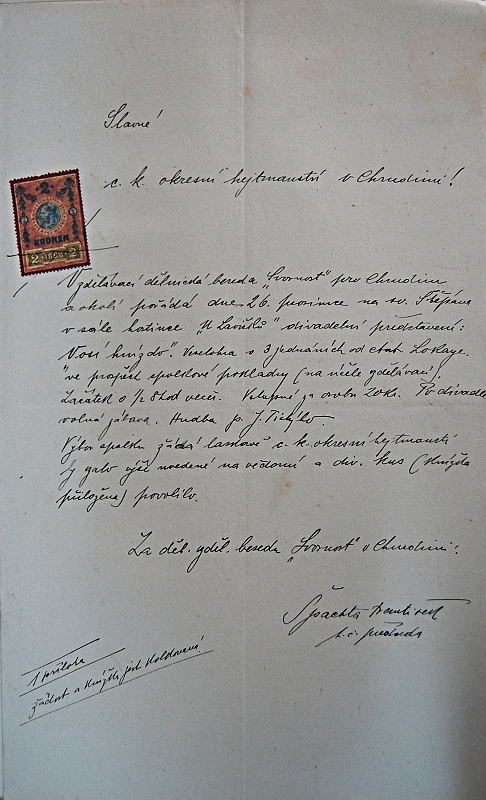 Slavné
c. k. okresní hejtmanství v Chrudimi!
2
2 2
KRONEN
2 · 1898 · 2
Vzdělávací dělnická beseda „Svornost" pro Chrudim
a okolí pořádá dne 26. prosince na sv. Štěpána
v sále hostince „U divadelní představení:
Vosí hnízdo". Veselohra o 3 jednáních od
ve prospěch spolkové pokladny (na účele vzdělávací).
Začátek o 1/2 8 hod več. Vstupné za osobu 20 kr. Po divadle
volná zábava. Hudba p. J. Tichýho.
Výbor spolku žádá laskavě c. k. okresní hejtmanství
by výše uvedené na vědomí a div. kus (knížka
přiložena) povolilo.
Za děl. vzděl. beseda „Svornost" v Chrudimi:
Špachta František
t. č. předseda
1 příloha
žádost a knížka jest kolkovaná